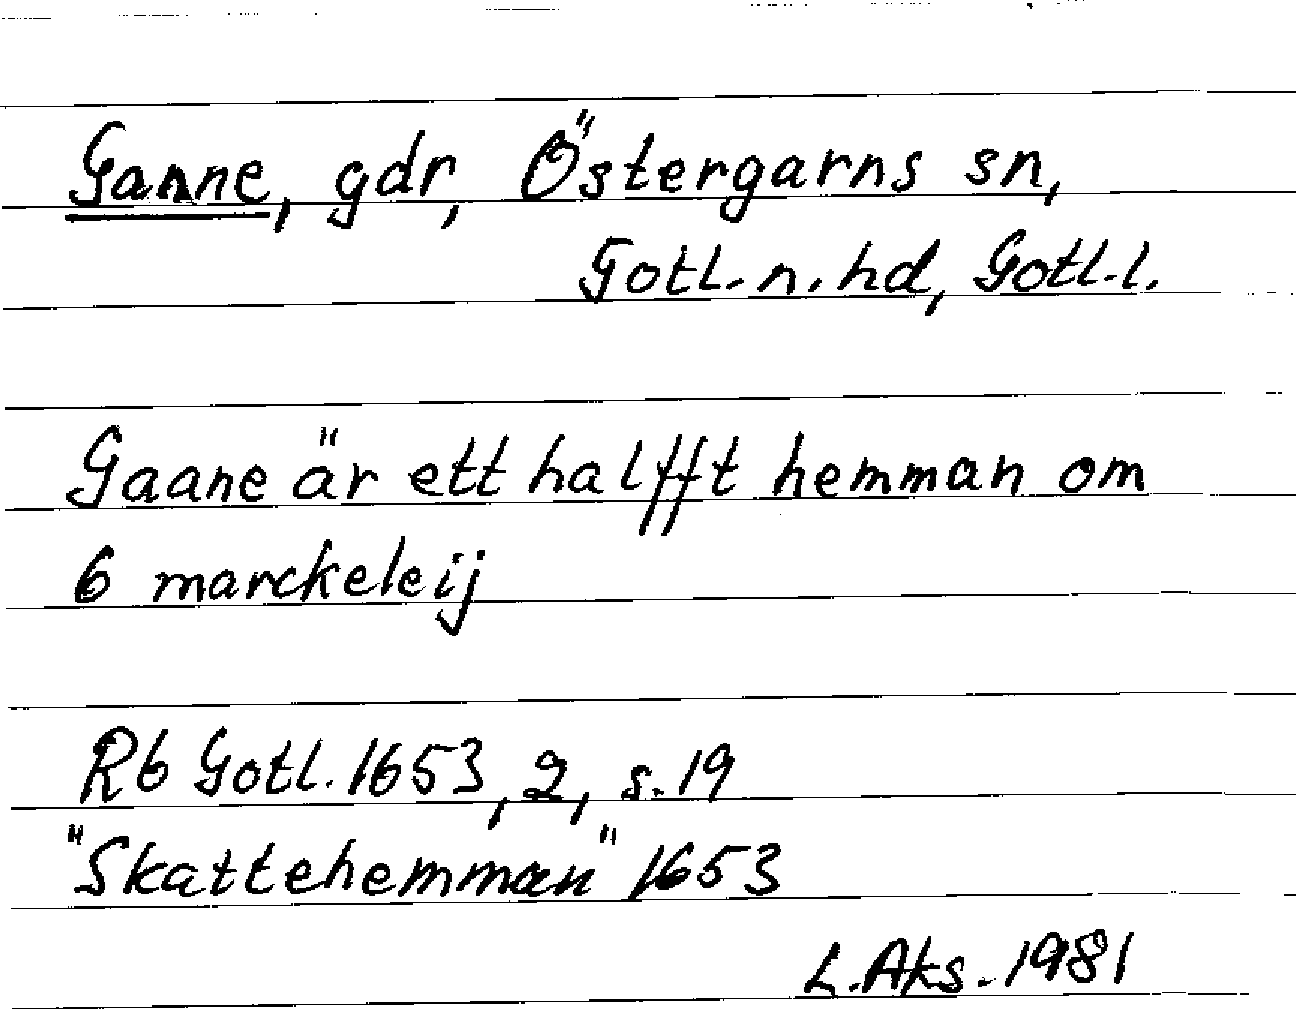 Ganne, gdr, Östergarns sn,
Gotl. n. hd, Gotl. l.
Gaane är ett halfft hemman om
6 marckeleij
Rb Gotl. 1653, 2, s. 19
"Skattehemman" 1653
L. Aks. 1981